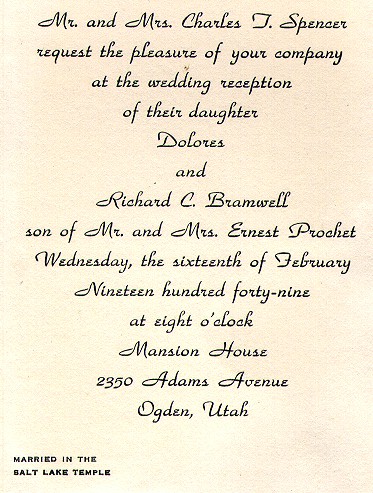 Mr. and Mrs. Charles T. Spencer
request the pleasure of your company
at the wedding reception
of their daughter
Dolores
and
Richard C. Bramwell
son of Mr. and Mrs. Ernest Prochet
Wednesday, the sixteenth of February
Nineteen hundred forty-nine
at eight o'clock
Mansion House
2350 Adams Avenue
Ogden, Utah
MARRIED IN THE
SALT LAKE TEMPLE